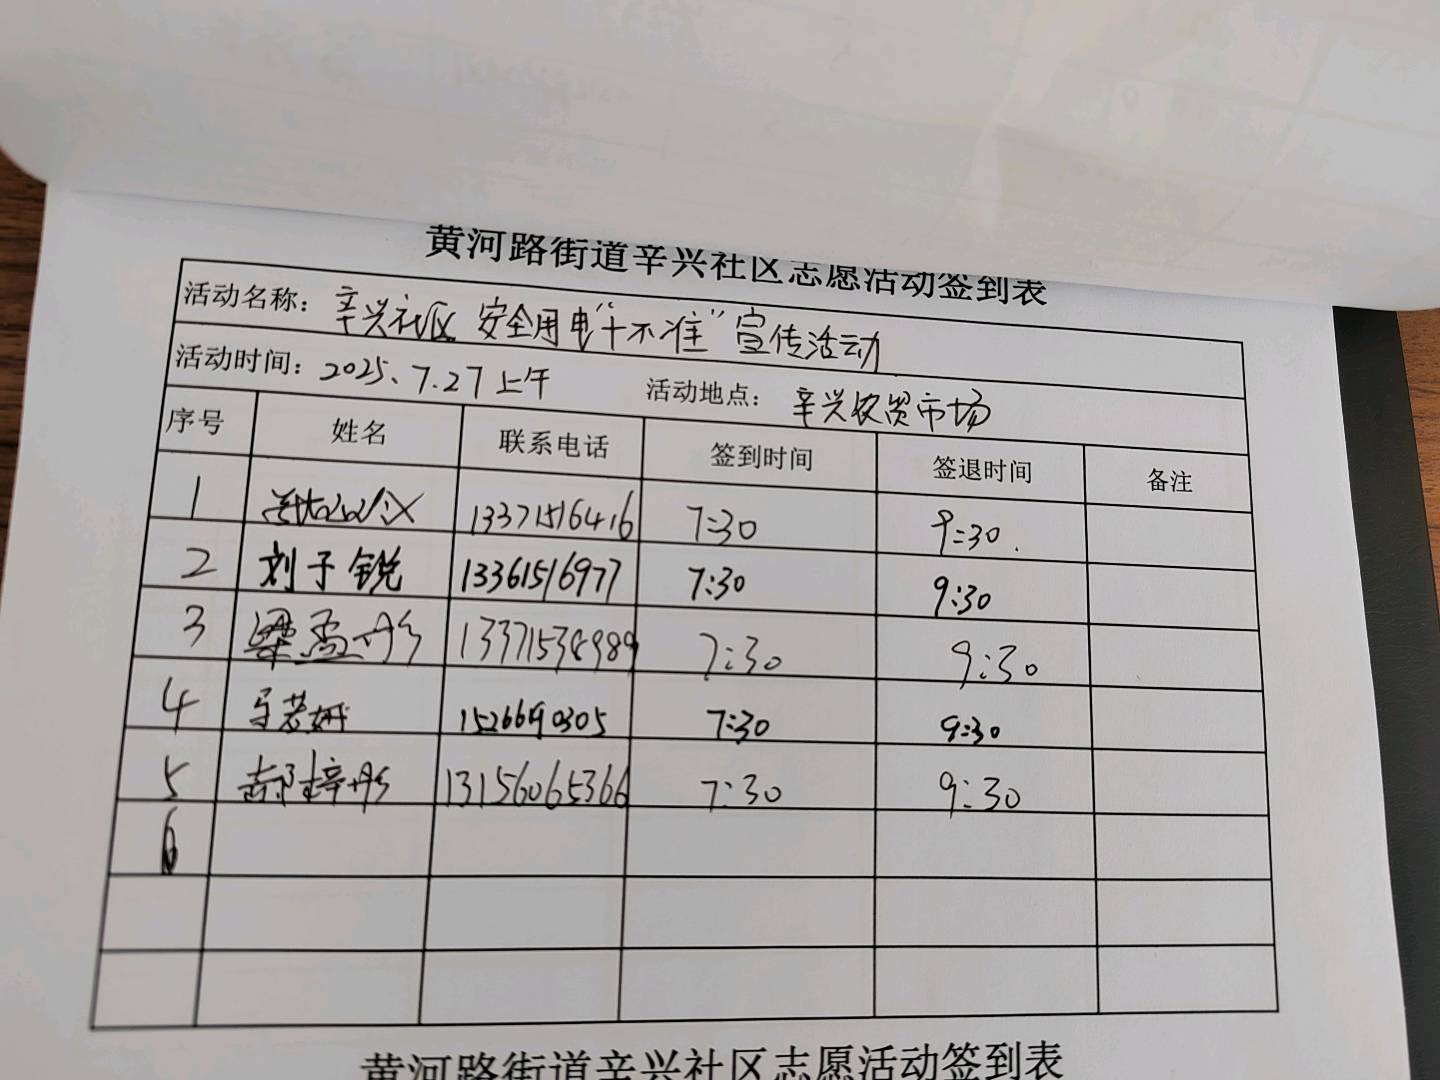 黄河路街道辛兴社区志愿活动签到表
活动名称：辛兴社区 安全用电“十不准”宣传活动
活动时间：2025、7.27上午 活动地点：辛兴农贸市场
序号 姓名 联系电话 签到时间 签退时间 备注
1 13371516416 7:30 9:30.
2 刘子锐 13361516977 7:30 9:30
3 梁孟丹彤 13371538989 7:30 9:30
4 马若妍 15266190305 7:30 9:30
5 郝梓彤 13156065366 7:30 9:30
6
黄河路街道辛兴社区志愿活动签到表